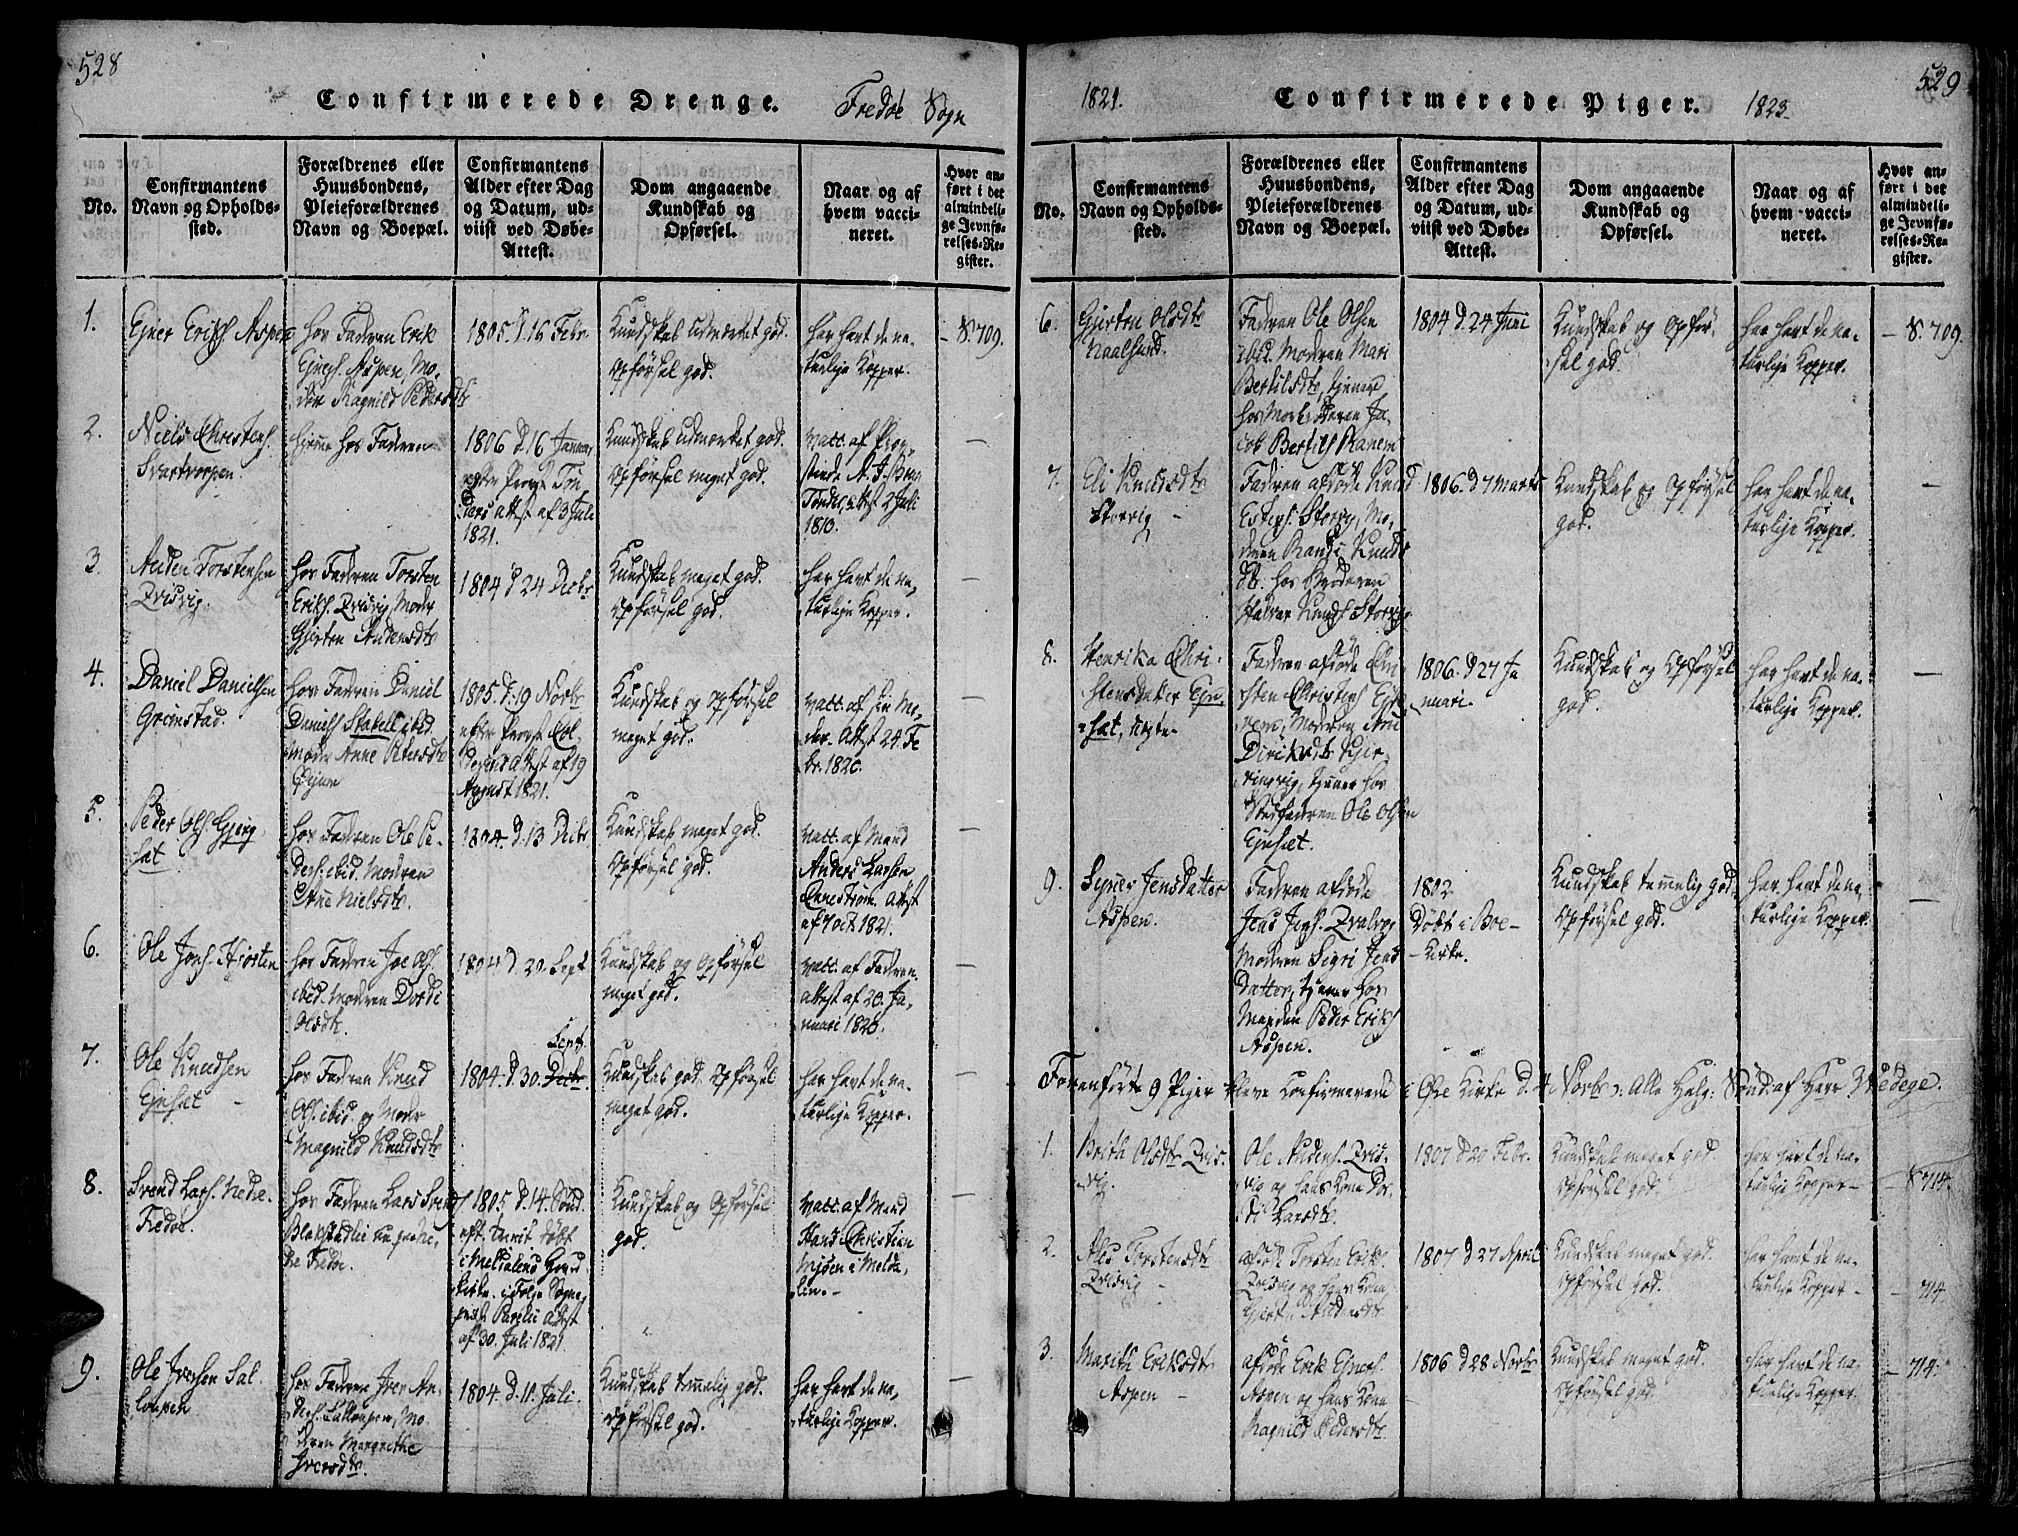 528
Confirmerede Drenge.
Fredöe Sogn
No.
Confirmantens
Navn og Opholds-
sted.
Forældrenes eller
Huusbondens,
Pleieforældrenes
Navn og Boepæl.
Confirmantens
Alder efter Dag
og Datum, ud-
viist ved Døbe-
Attest.
Dom angaaende
Kundskab og
Opførsel.
Naar og af
hvem vacci-
neret.
Hvor an-
ført i det
almindeli-
ge Jevnfø-
relses-Re-
gister.
1.
Ejner Eriks. Aspen
hos Fadren Erik
Ejners. Aspen, Mo-
dren Ragnild Pedersdtr
1805. d. 16 Febr.
Kundskab udmærket god.
Opførsel god.
har havt de na-
turlige Kopper.
S. 709.
2.
Niels Christens.
Svartvorpen.
hjemme hos Fadren
1806 d. 16 Januar
efter Provst
attest af 3 Juli
1821.
Kundskab udmærket god.
Opførsel meget god.
vacc. af
attest 2 Juli
1810.
3.
Auden Torstensen
Qvisvig.
hos Fadren Torsten
Eriks. Qvisvig, Moder
Gjerton Audensdtr
1804 d. 24 Decbr
Kundskab meget god.
Opførsel god.
har havt de na-
turlige Kopper.
4.
Daniel Danielsen
Grimstad.
hos Fadren Daniel
Daniels. Stabell ibid.
Moder Anne Petersdtr
1805. d. 19 Novbr
efter Provst
attest af 19
August 1821.
Kundskab og Opførsel
meget god.
vacc. af sin Mo-
der. Attest 24. Fe-
br. 1820.
5.
Peder Ols. Gjeng-
sæt
hos Fadren Ole Pe-
ders. ibid. Modren
Ane Nielsdtr.
1804. d. 13 Decbr
Kundskab meget god.
Opførsel god.
vacc. af Mand
Anders Larsen
Attest
af 7 Oct. 1821.
6.
Ole Jons. Hjorten
hos Fadren Joe Ols.
ibid. Modren Dordi
Olsdtr.
1804 d. 20. Sept
Kundskab og Opførsel
meget god.
vacc. af Fadren.
attest af 20. Ja-
nuari 1820.
7.
Ole Knudsen
Ejnsæt
hos Fadren Knud
Ols. ibid. og Moder
Magnild Knudsdtr
Sept.
1804. d. 30. Decbr.
Kundskab god. Opførsel
meget god.
har havt de na-
turlige Kopper.
8.
Svend Lars. Nedre-
Fredöe.
hos Fadren Lars Svend
Fredöe.
1805. d. 14. Sönd.
eft. Trinit. döbt
i Meldalens Hoved
kirke. i Følge Sogne-
attest
af 30. Juli 1821.
Kundskab og Opførsel
god.
vacc. af Mand
Hans Christian
Mjöen i Melda-
len.
9.
Ole Iversen Sal-
loupen
hos Fadren Iver An-
ders. Salloupen, Mo-
dren Margrethe
Iversdtr.
1804. d. 11. Juli.
Kundskab temmelig god.
Opførsel god.
har havt de na-
turlige Kopper.
1821.
Confirmerede Piger.
1823
529
No.
Confirmantens
Navn og Opholds-
sted.
Forældrenes eller
Huusbondens,
Pleieforældrenes
Navn og Boepæl.
Confirmantens
Alder efter Dag
og Datum, ud-
viist ved Døbe-
Attest.
Dom angaaende
Kundskab og
Opførsel.
Naar og af
hvem vacci-
neret.
Hvor an-
ført i det
almindeli-
ge Jevnfø-
relses-Re-
gister.
6.
Gjerton Olsdtr
Naalsund.
Fadren Ole Olsen
ibid. Modren Mari
Bertilsdtr, tjenere
hos Morbroderen Ja-
cob Bertils. Ranem
1804 d. 24 Juni
Kundskab og Opför-
sel god.
har havt de na-
turlige Kopper.
S. 709.
7.
Eli Knudsdtr
Storvig
Fadren afdöde Knud
Storvig, Mo-
deren Randi Knuds-
dtr. hos Broderen
Halvor Knuds. Storvig
1806. d 7 Marts
Kundskab og Opførsel
god.
har havt de na-
turlige Kopper.
8.
Henrika Chri-
stensdatter Ejn-
sæt,
Fadren afdöde Chri-
sten Christens.
Modren
Diriksdtr
tjener hos
Stedfadren Ole Olsen
Ejnsæt.
1806. d 27 Ja-
nuari.
Kundskab og Opførsel
god.
har havt de na-
turlige Kopper.
9.
Synev Jensdatter
Aspen.
Fadren afdöde
Jens Jens.
Modren Sigri Jens-
datter, tjener hos
Manden Peder Eriks.
Aspen.
1802
Döbt i Boe-
Kirke.
Kundskab temmelig god
Opførsel god.
har havt de na-
turlige Kopper.
Foranførte 9 Piger bleve confirmerede i Öre Kirke d. 4 Novbr : Alle Helg: Sönd. af Herr Wedege.
1.
Brith Olsdtr Qvis-
vig.
Ole Audens. Qvis-
vig og hans Kone Dor-
di Larsdtr.
1807 d 20 Febr.
Kundskab meget god
Opførsel god.
har havt de na-
turlige Kopper
S 714.
2.
Torstensdtr
Qvisvig
afdöde Torsten Eriks.
Qvisvig og hans Kone
Gjert. Audensdtr
1807 d 27 April
Kundskab meget god.
Opførsel god.
har havt de na-
turlige Kopper
714
3.
Marith Eriksdtr
Aspen
afdöde Erik Ejners.
Aspen og hans Kone
Ragnild Pedersdtr.
1806 d 28 Novbr
Kundskab meget god.
Opførsel god.
har havt de na-
turlige Kopper.
714